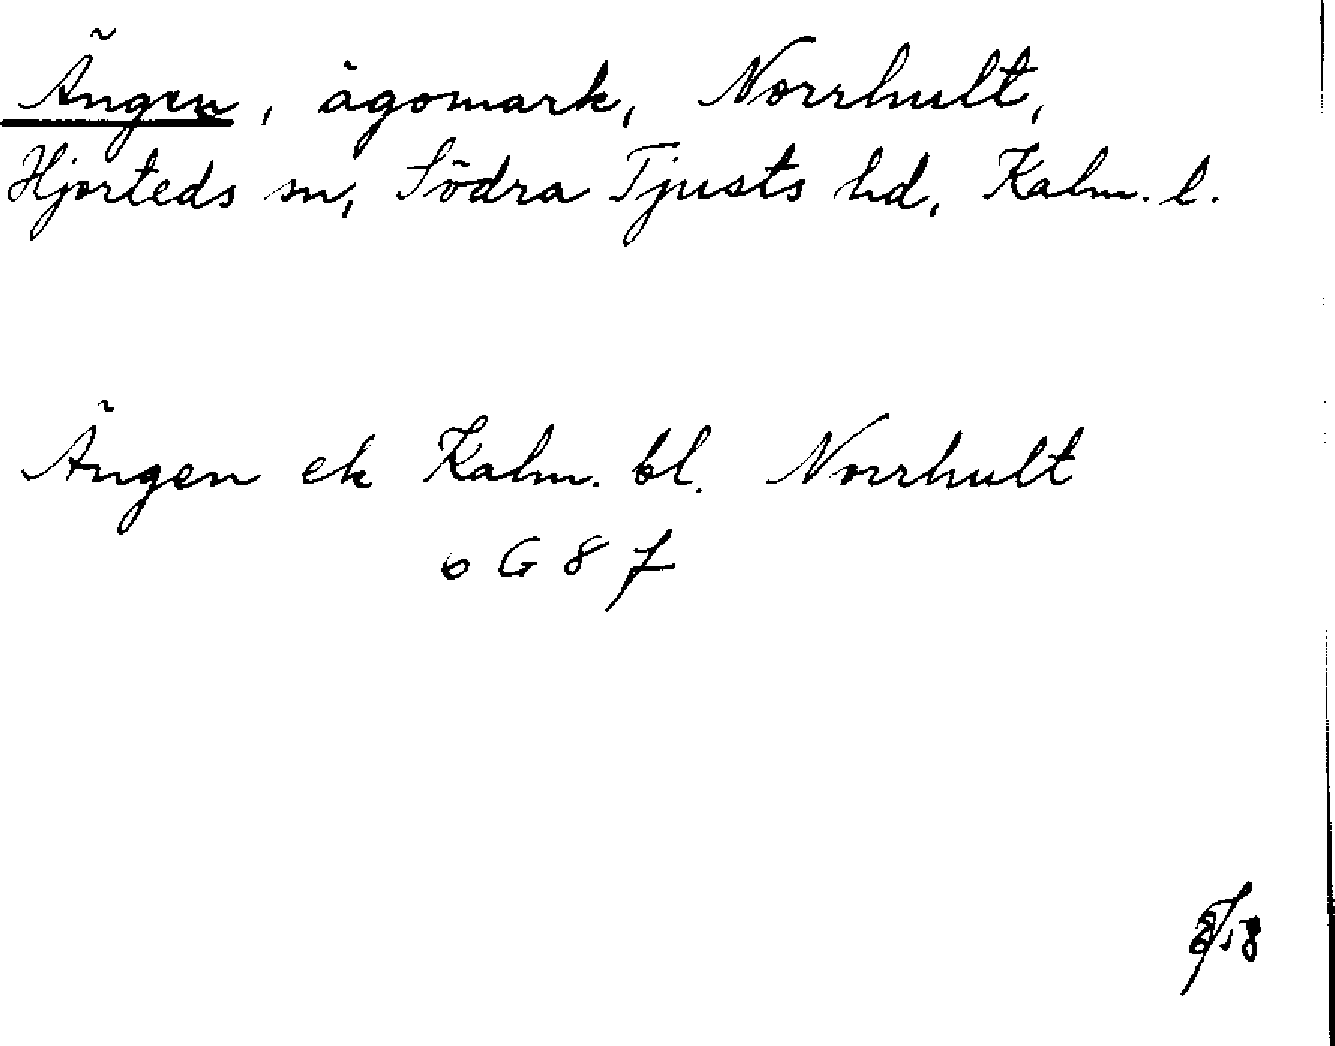 Ängen, ägomark, Norrhult,
Hjorteds sn, Södra Tjusts hd, Kalm. l.
Ängen ek Kalm. bl. Norrhult
o G 8 f